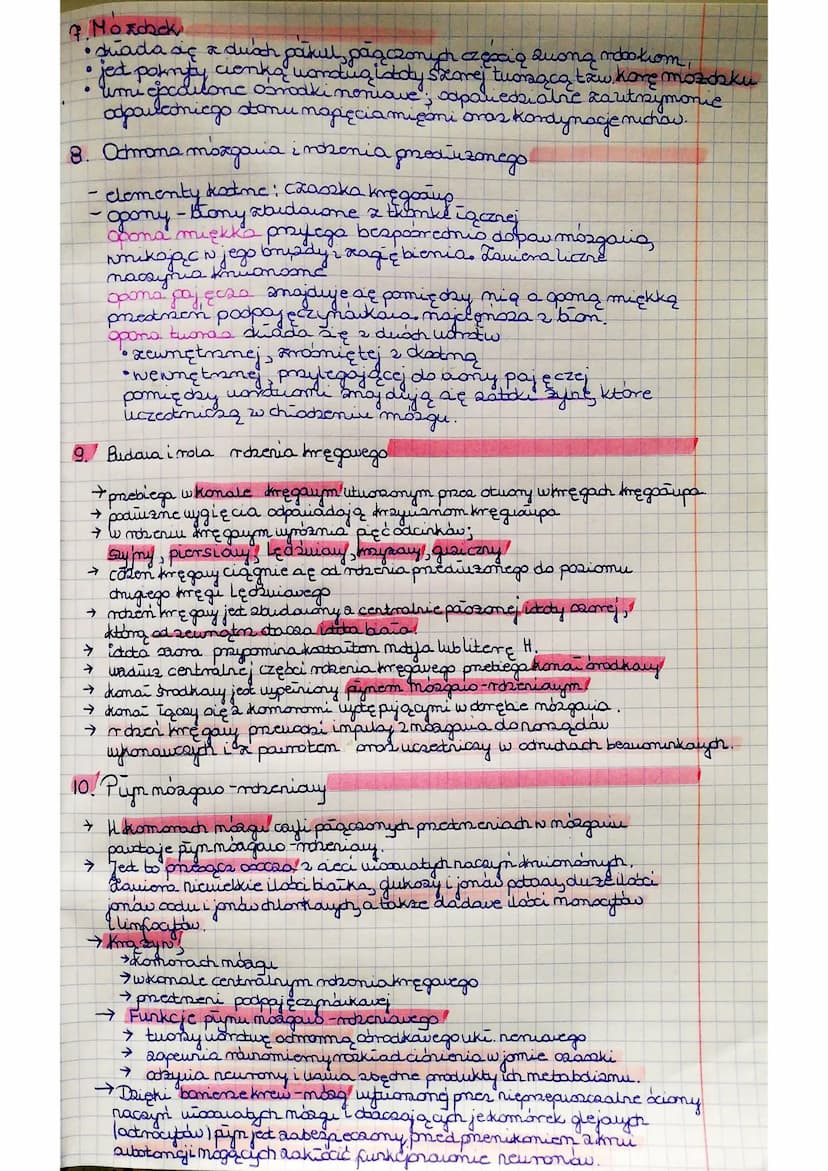 7. Móżdżek
• składa się z dwóch półkul, połączonych częścią zwaną robakiem,
• jest pokryty cienką warstwą istoty szarej tworzącą tzw. korę móżdżku
• umiejscowione ośrodki nerwowe, odpowiedzialne za utrzymanie
odpowiedniego stanu napięcia mięśni oraz kordynację ruchów.
8. Ochrona mózgowia i rdzenia przedłużonego
- elementy kostne: czaszka kręgosłup
- opony - błony zbudowane z tkanki łącznej
opona miękka przylega bezpośrednio do pow mózgowia,
wnikając w jego bruzdy i zagłębienia. Zawiera liczne
naczynia krwionośne
opona pajęcza znajduje się pomiędzy nią a oponą miękką
przestrzeń podpajęczynówkowa. najcieńsza z błon.
opona twarda składa się z dwóch warstw
• zewnętrznej, zrośniętej z kostną
• wewnętrznej, przylegającej do opony pajęczej
pomiędzy warstwami znajdują się zatoki żylne, które
uczestniczą w chłodzeniu mózgu.
9. Budowa i rola rdzenia kręgowego
→ przebiega w kanale kręgowym utworzonym przez otwory w kręgach kręgosłupa
→ podłużne wygięcia odpowiadają krzywiznom kręgosłupa
→ w rdzeniu kręgowym wyróżnia pięć odcinków;
szyjny, piersiowy, lędźwiowy, krzyżowy, guziczny
→ rdzeń kręgowy ciągnie się od rdzenia przedłużonego do poziomu
drugiego kręgu lędźwiowego
→ rdzeń kręgowy jest zbudowany z centralnie położonej istoty szarej,
którą od zewnątrz otacza istota biała.
→ istota szara przypomina kształtem motyla lub literę H.
→ wzdłuż centralnej części rdzenia kręgowego przebiega kanał środkowy
→ kanał środkowy jest wypełniony płynem mózgowo-rdzeniowym
→ kanał łączy się z komorami występującymi w obrębie mózgowia.
→ rdzeń kręgowy przewodzi impulsy z mózgowia do narządów
wykonawczych i z powrotem oraz uczestniczy w odruchach bezwarunkowych.
10. Płyn mózgowo-rdzeniowy
→ W komorach mózgu czyli połączonych przestrzeniach w mózgowiu
powstaje płyn mózgowo-rdzeniowy.
→ Jest to przesącz osocza z sieci włosowatych naczyń krwionośnych.
Zawiera niewielkie ilości białka, glukozy i jonów potasu, duże ilości
jonów sodu i jonów chlorkowych, a także śladowe ilości monocytów
i limfocytów.
→ Krąży w:
→ komorach mózgu
→ w kanale centralnym rdzenia kręgowego
→ przestrzeni podpajęczynówkowej
→ Funkcje płynu mózgowo-rdzeniowego
→ tworzy warstwę ochronną ośrodkowego ukł. nerwowego
→ zapewnia równomierny rozkład ciśnienia w jamie czaszki
→ odżywia neurony i usuwa zbędne produkty ich metabolizmu.
→ Dzięki barierze krew-mózg wytworzonej przez nieprzepuszczalne ściany
naczyń włosowatych mózgu i otaczających je komórek glejowych
(astrocytów) płyn jest zabezpieczony przed przenikaniem z krwi
substancji mogących zakłócić funkcjonowanie neuronów.